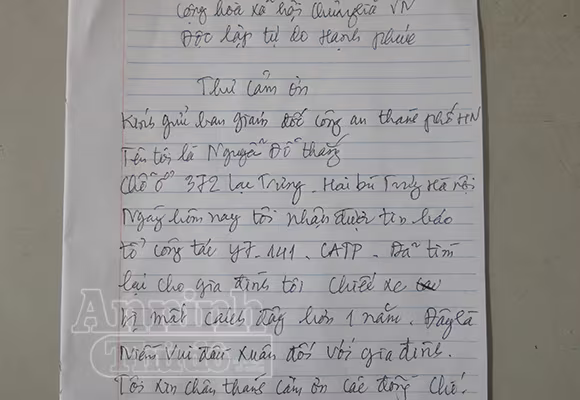 Cộng hòa xã hội chủ nghĩa VN
Độc lập tự do Hạnh phúc
Thư cảm ơn
Kính gửi ban giám đốc công an thành phố HN
Tên tôi là Nguyễn Đỗ Thắng
Chỗ ở 372 Lạc Trung. Hai bà Trưng Hà nội
Ngày hôm nay tôi nhận được tin báo
tổ công tác Y7-141. CATP. Đã tìm
lại cho gia đình tôi chiếc xe
bị mất cách đây hơn 1 năm. Đây là
Niềm vui đầu xuân đối với gia đình.
Tôi xin chân thành cảm ơn các đồng chí.
An ninh
Thủ đô